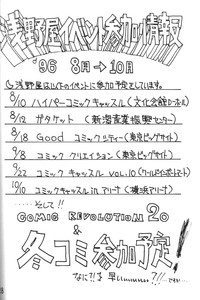 浅野屋イベント参加情報
'96 8月→10月
浅野屋は以下のイベントに参加予定としています。
8/10 ハイパーコミックキャッスル(文化会館Dホール)
8/12 ガタケット(新潟産業振興センター)
8/18 Good コミックシティー(東京ビッグサイト)
9/8 コミック クリエイション(東京ビッグサイト)
9/22 コミックキャッスル VOL.10
10/10 コミックキャッスル in アリーナ(横浜アリーナ)
……そして!!
COMIC REVOLUTION 20
&
冬コミ参加予定!
なに?!早い